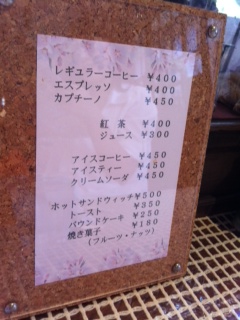 レギュラーコーヒー ￥400
エスプレッソ ￥400
カプチーノ ￥450
紅 茶 ￥400
ジュース ￥300
アイスコーヒー ￥450
アイスティー ￥450
クリームソーダ ￥450
ホットサンドウィッチ￥500
トースト ￥350
パウンドケーキ ￥250
焼き菓子 ￥180
(フルーツ・ナッツ)